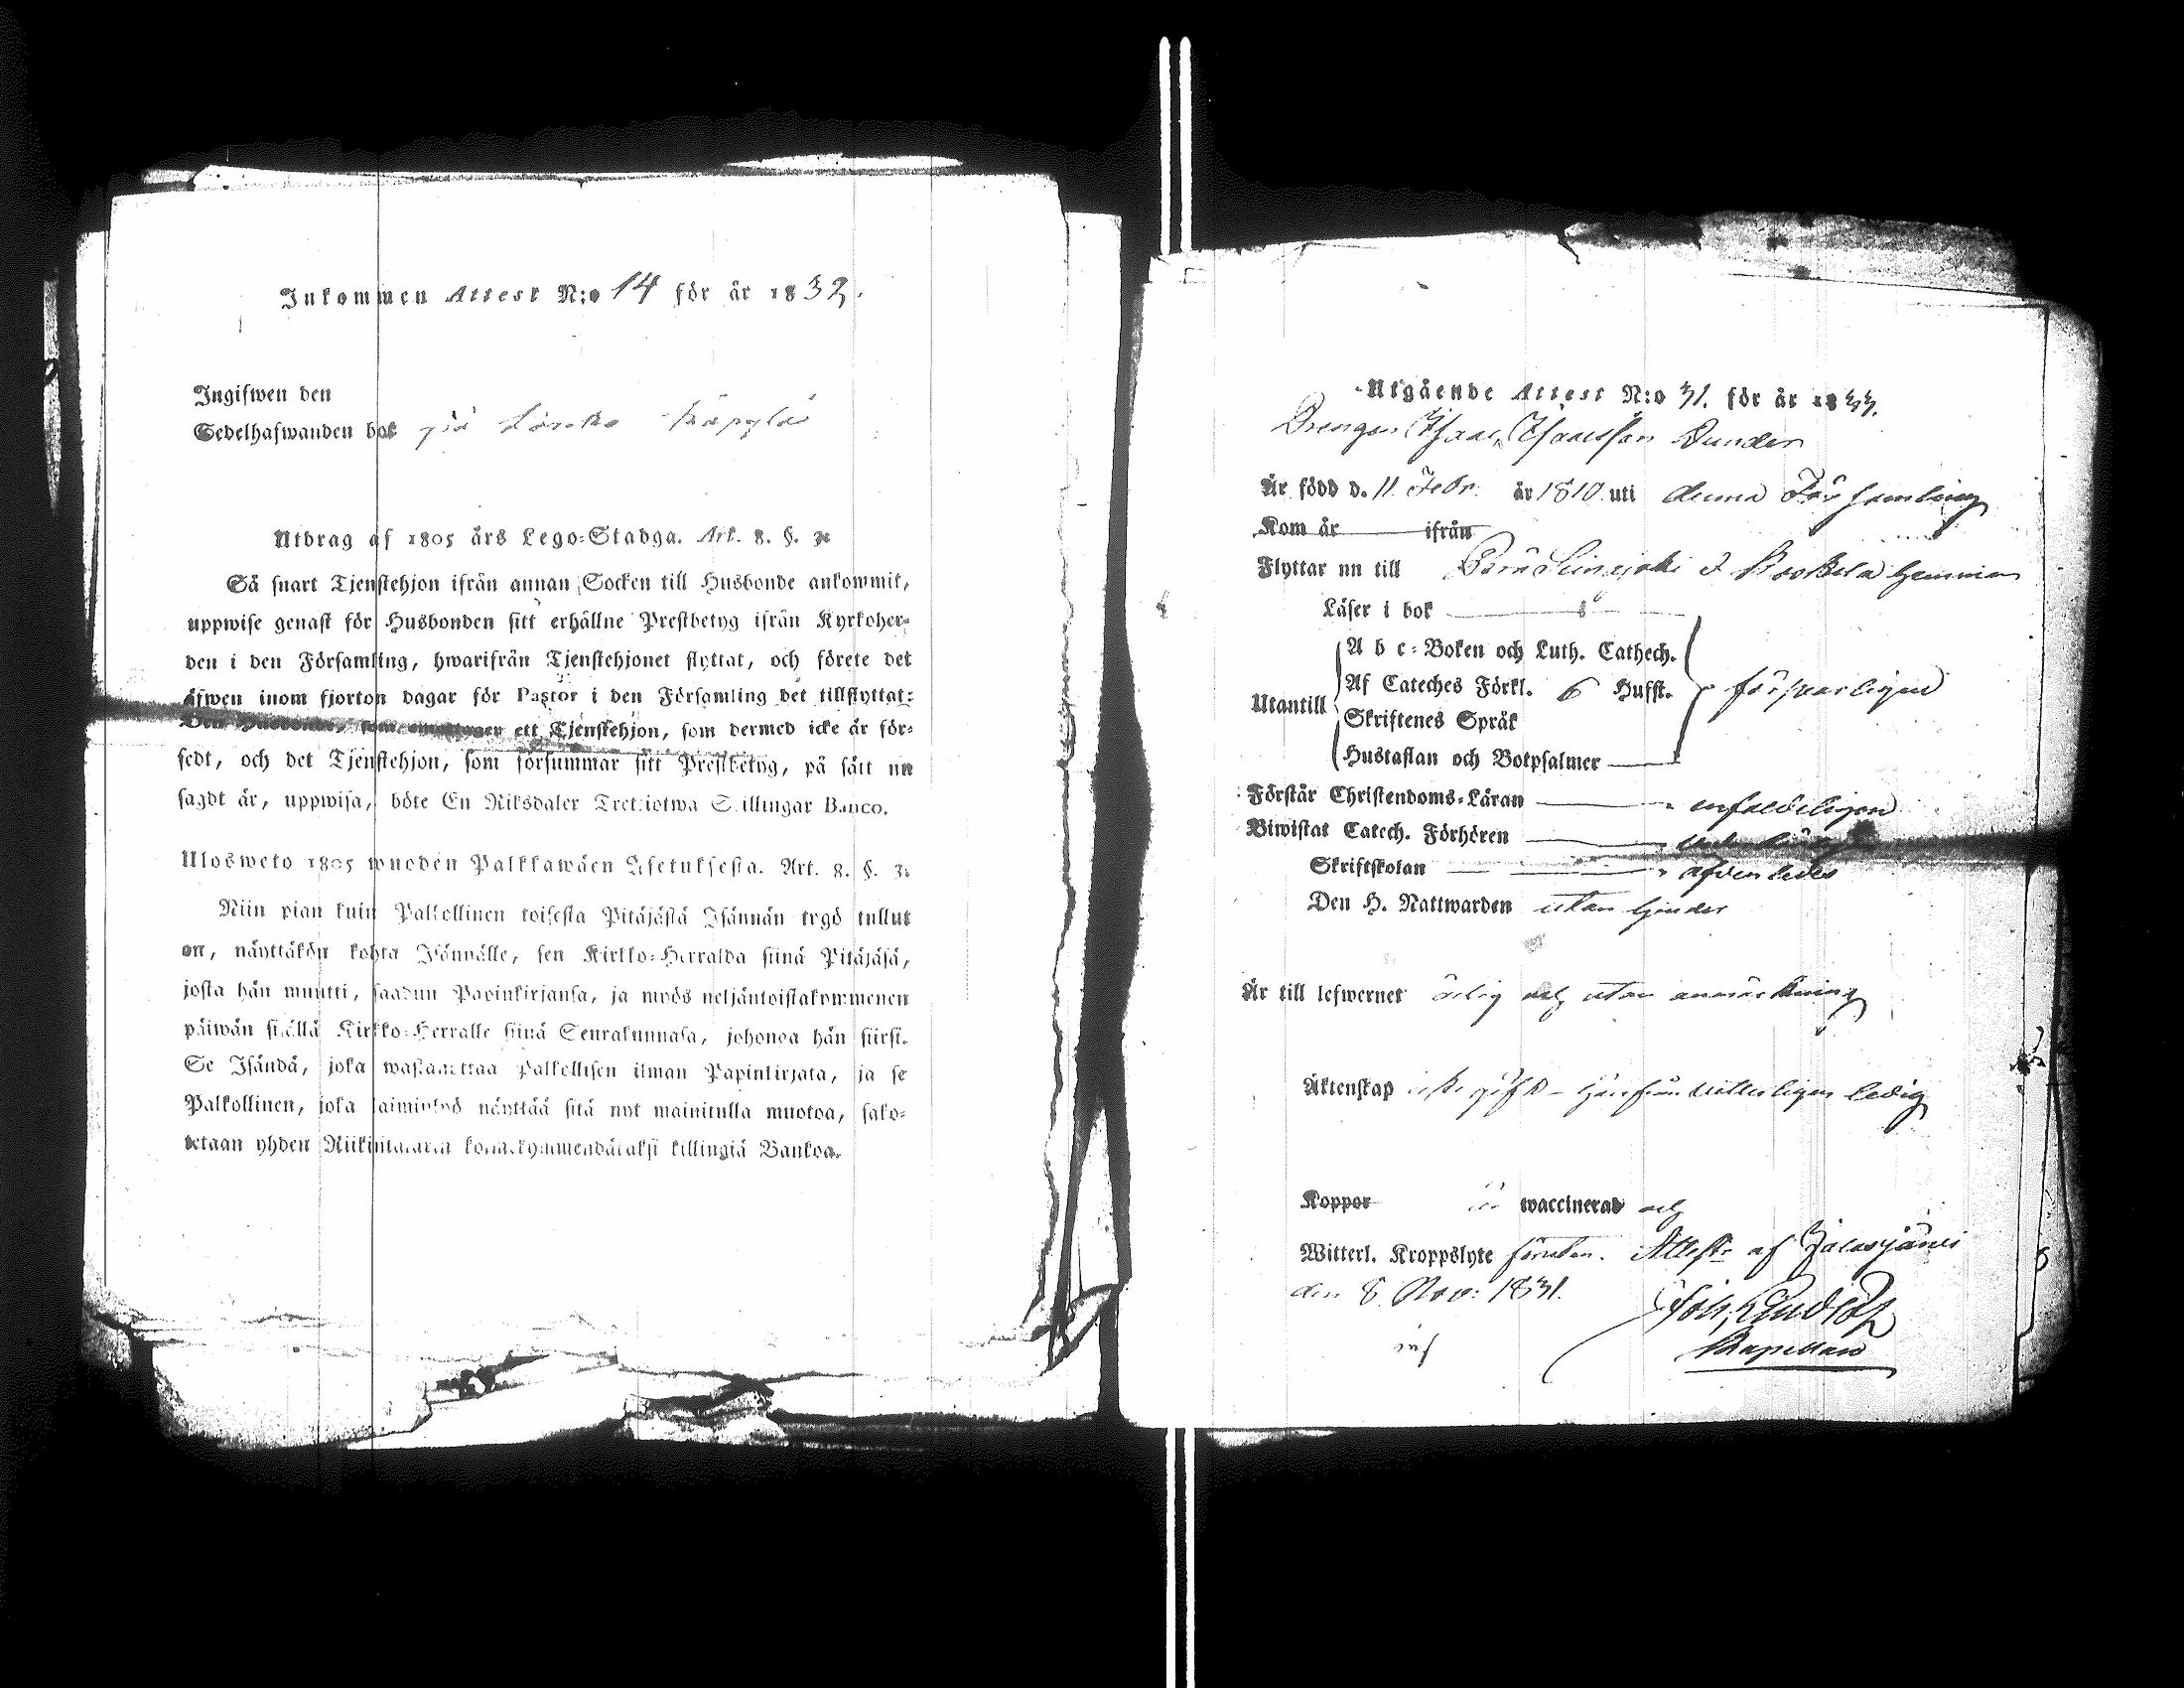 Inkommen Attest N:o 14 för år 1832.
Ingifwen den
Sedelhafwanden bok på
Utdrag af 1805 års Lego-Stadga. Art. 8. §. 3.
Så snart Tjenstehjon ifrån annan Socken till Husbonde ankommit,
uppwise genast för Husbonden sitt erhållne Prestbetyg ifrån Kyrkoher-
den i den Församling, hwarifrån Tjenstehjonet flyttat, och förete det
äfwen inom fjorton dagar för Pastor i den Församling det tillflyttat:
Den Husbonde, som emottager ett Tjenstehjon, som dermed icke är för-
sedt, och det Tjenstehjon, som försummar sitt Prestbetyg, på sätt nu
sagdt är, uppwisa, böte En Riksdaler Trettiotwa Skillingar Banco.
Ulosweto 1805 wuoden Palkkawäen Asetuksesta. Art. 8. §. 3.
Niin pian kuin Palkollinen toisesta Pitäjästä Isännän tygö tullut
on, näyttäkön kohta Isännälle, sen Kirkko-Herralda siinä Pitäjäsä,
josta hän muutti, saadun Papinkirjansa, ja myös neljäntoistakymmenen
päiwän sisällä Kirkko-Herralle siinä Seurakunnasa, johonga hän siirsi.
Se Isändä, joka wastanottaa Palkollisen ilman Papinkirjata, ja se
Palkollinen, joka laiminlyö näyttää sitä nyt mainitulla muotoa, sako-
tetaan yhden Riikintalarin kolmekymmendäkaksi killingiä Bankoa.
Utgående Attest N:o 31. för år 1833.
Drengen Isaac Isaacsson Dunder
Är född d. 11 Febr. år 1810. uti denna Församling
Kom år ifrån
Flyttar nu till Seinäjoki Hemman
Läser i bok
A b c-Boken och Luth. Cathech.
Af Cateches Förkl. 6 Hufst.
Utantill försvarligen
Skriftenes Språk
Hustaflan och Botpsalmer
Förstår Christendoms-Läran enfaldeligen
Biwistat Catech. Förhören
Skriftskolan afvenledes
Den H. Nattwarden utan hinder
Är till lefwernet ärlig och utan anmärkning
Äktenskap icke gift - härifrån ledig
Koppor är waccinerad och
Witterl. Kroppslyte förutan. Attest. af Jalasjärvi
den 8. Nov: 1831.
Kapellan